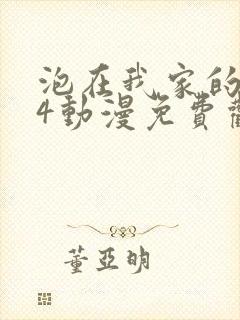 泡在我家的
4動漫免費
董亞明